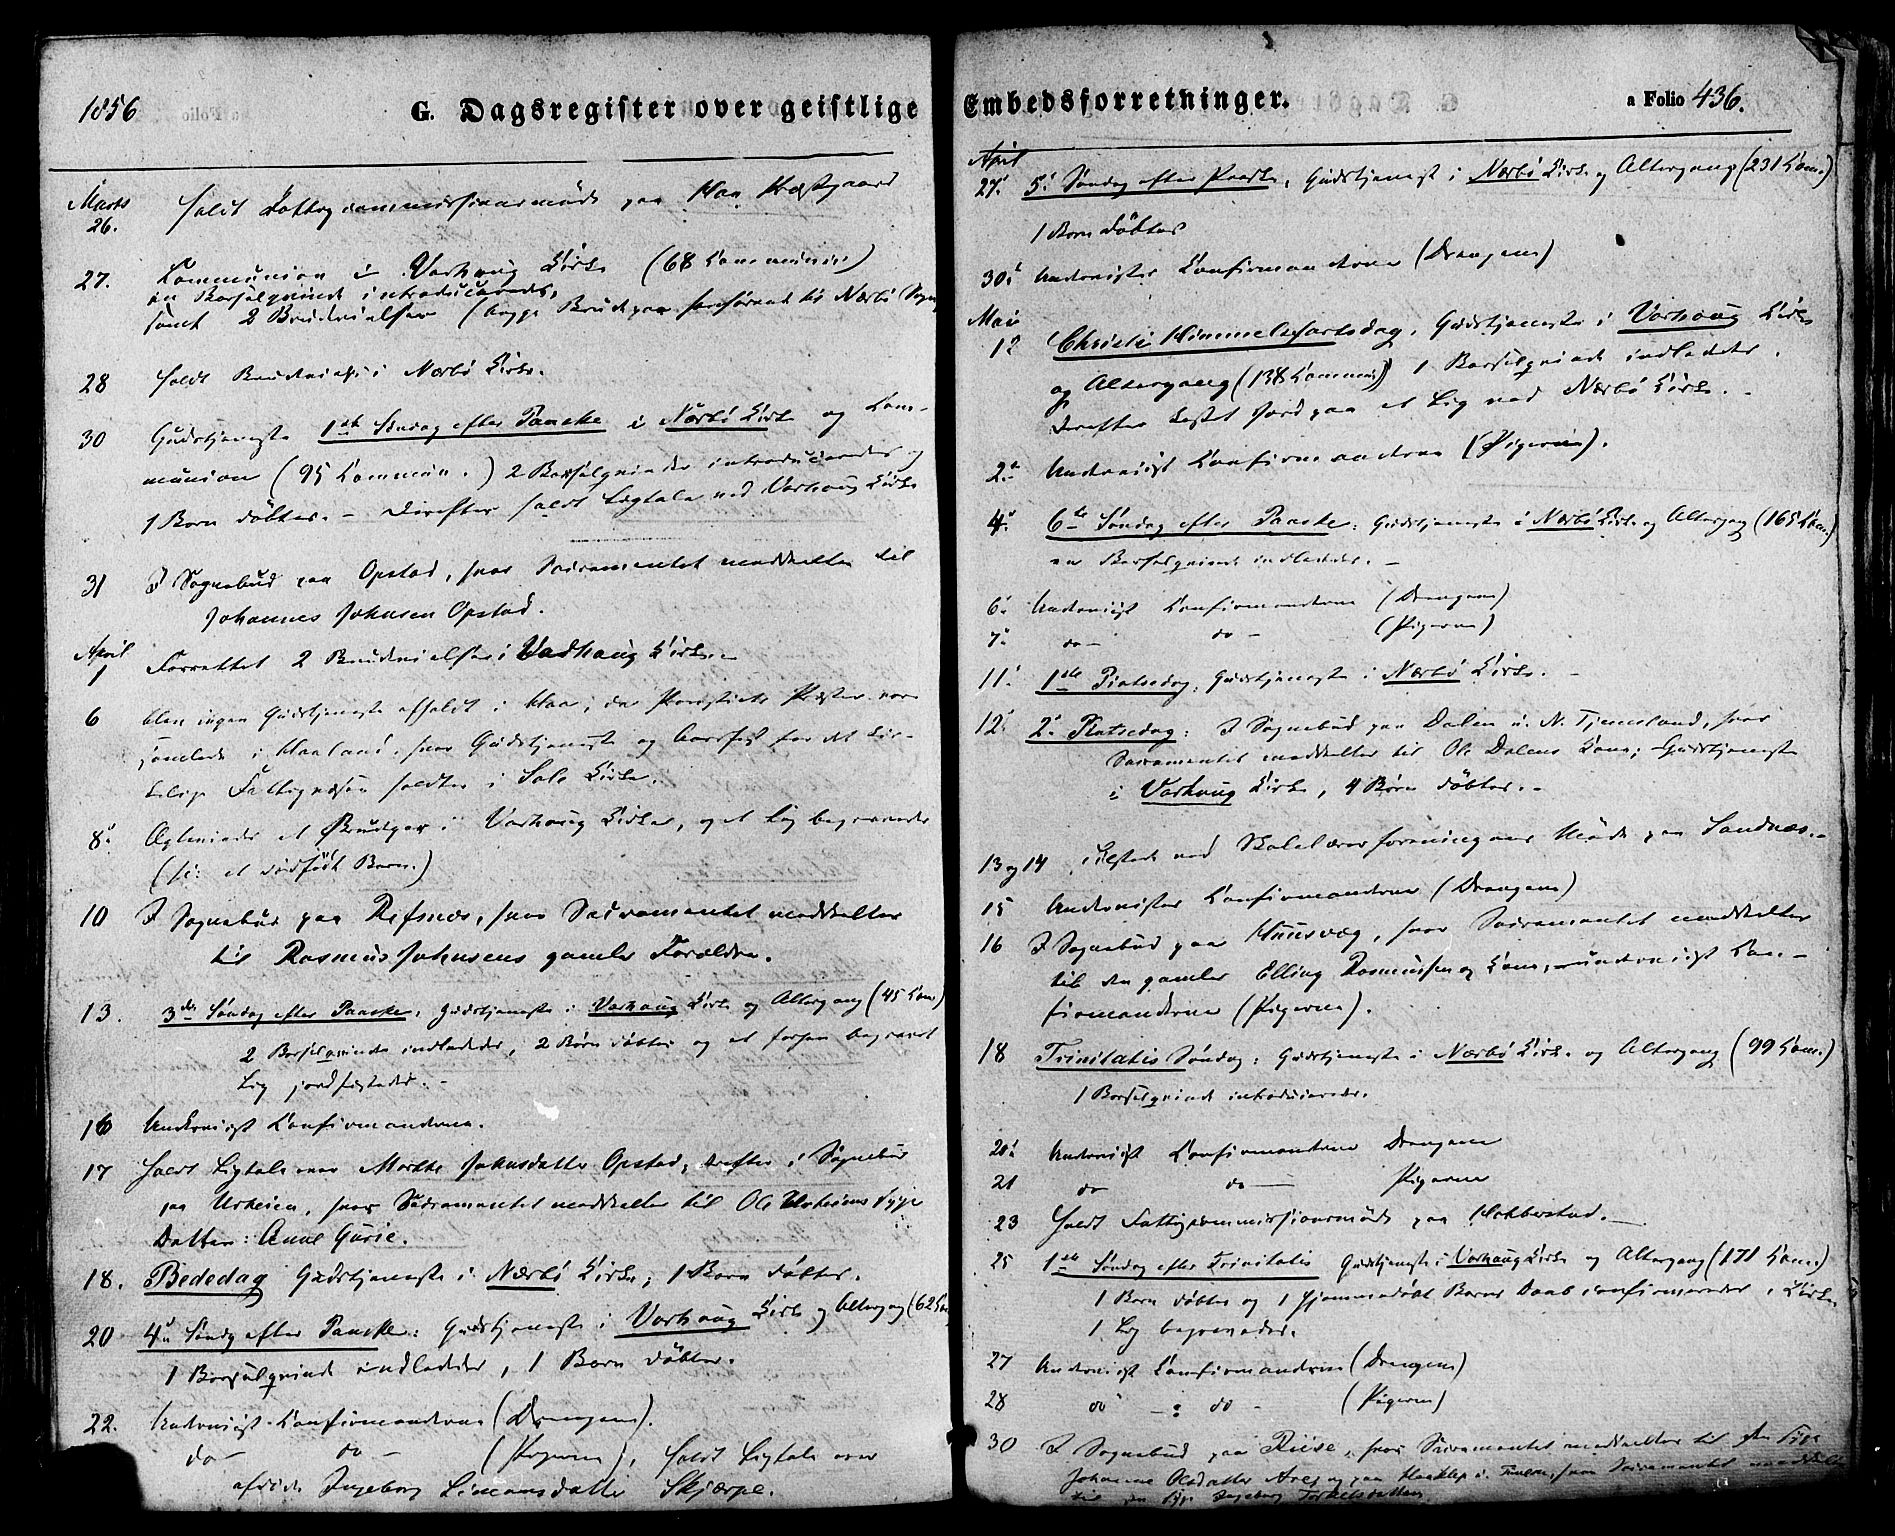 1856 G. Dagsregister over geistlige
Marts
26. holdt Fattigcommissionsmøde paa Haa Præstgaard
27. Communion i Varhoug Kirke (68 Communic)
en Barselqvinde introduceredes,
samt 2 Brudevielser (begge Brudepar henhørende til Nærbø Sogn
28 holdt Brudevielse i Nærbø Kirke.
30 Gudstjeneste 1ste Søndag efter Paaske i Nærbø Kirke og Com-
munion (95 Commun.) 2 Barselqvinder introduceredes og
1 Barn døbtes. – derefter holdt Ligtale ved Varhoug Kirke
31 I Sognebud paa Opstad, hvor Sacramentet meddeeltes til
Johannes Johnsen Opstad.
April
1 Forrettet 2 Brudevielser i Varhoug Kirke. –
6 blev ingen Gudstjeneste afholdt i Haa, da Provstiets Præster vare
samlede i Haaland, hvor Gudstjeneste og for det
Fattigvæsen holdtes i Sole Kirke.
8. Ægteviedes et Brudepar i Varhoug Kirke, og et Lig begravedes
( : et dødfødt Barn.)
10 I Sognebud paa Refsnæs, hvor Sacramentet meddeeltes
til Rasmus Johnsens gamle Forældre.
13. 3die Søndag efter Paaske, Gudstjeneste i Varhoug Kirke og Altergang (45 Com.)
2 Barselqvinder indlededes, 2 Børn døbtes og et forhen begravet
Lig jordfæstedes. –
16 Underviist Confirmanderne.
17 holdt Ligtale over Marthe Johnsdatter Opstad, derefter i Sognebud
paa Urheien, hvor Sacramentet meddeeltes til Ole Urheiens syge
Datter: Anne Gurie.
18. Bededag Gudstjeneste i Nærbø Kirke; 1 Barn døbtes.
20 4de Søndag efter Paaske: Gudstjeneste i Varhoug Kirke og Altergang (62 Com
1 Barselqvinde indlededes, 1 Barn døbtes.
22. Underviist Confirmanderne (Drengene).
do – do – (Pigerne), holdt Ligtale over
afdøde Ingeborg Simonsdatter Skjærpe.
Embedsforretninger. a Folio 436.
April
27. 5. Søndag efter Paaske, Gudstjeneste i Nærbø Kirke og Altergang (231 Com.)
1 Barn døbtes
30. Underviistes Confirmanderne (Drengene)
Mai
1 Christi Himmelfartsdag, Gudstjeneste i Varhoug Kirke
og Altergang (138 Commun) 1 Barselqvinde indlededes.
Derefter kastet Jord paa et Lig ved Nærbø Kirke. –
2. Underviist Confirmanderne (Pigerne).
4. 6te Søndag efter Paaske: Gudstjeneste i Nærbø Kirke og Altergang (165 Com.)
en Barselqvinde indlededes. –
6. Underviist Confirmanderne (Drengene)
7. do – do – (Pigerne)
11. 1ste Pintsedag, Gudstjeneste i Nærbø Kirke. –
12. 2. Pintsedag: I Sognebud paa Dalen u. N. Tjemsland, hvor
Sacramentet meddeeltes til Ole Dalens Kone; Gudstjeneste
i Varhoug Kirke, 4 Børn døbtes. –
13 og 14 tilstede ved Skolelærerforeningens Møde paa Sandnæs. –
15 Underviistes Confirmanderne (Drengene)
16 I Sognebud paa Huusvæg, hvor Sacramentet meddeeltes
til den gamle Elling Rasmussen og Kone, – underviist Con-
firmanderne (Pigerne).
18 Trinitatis Søndag: Gudstjeneste i Nærbø Kirke og Altergang (99 Com.)
1 Barselqvinde introduceredes.
20. Underviist Confirmanterne Drengene
21 do do — Pigerne
23 holdt Fattigcommissionsmøde paa Hobberstad. –
25 1ste Søndag efter Trinitatis Gudstjeneste i Varhoug Kirke og Altergang (171 Com.)
1 Barn døbtes og 1 hjemmedøbt Barns Daab confirmeredes i Kirken
1 Lig begravedes.
27 Underviist Confirmanderne (Drengene)
28 do – : do – (Pigerne)
30 I Sognebud paa Riise, hvor Sacramentet meddeeltes til den syge
Johanne Olsdatter og paa hvor Sacramentet meddeeltes
til den syge Ingeborg Torkelsdatter.